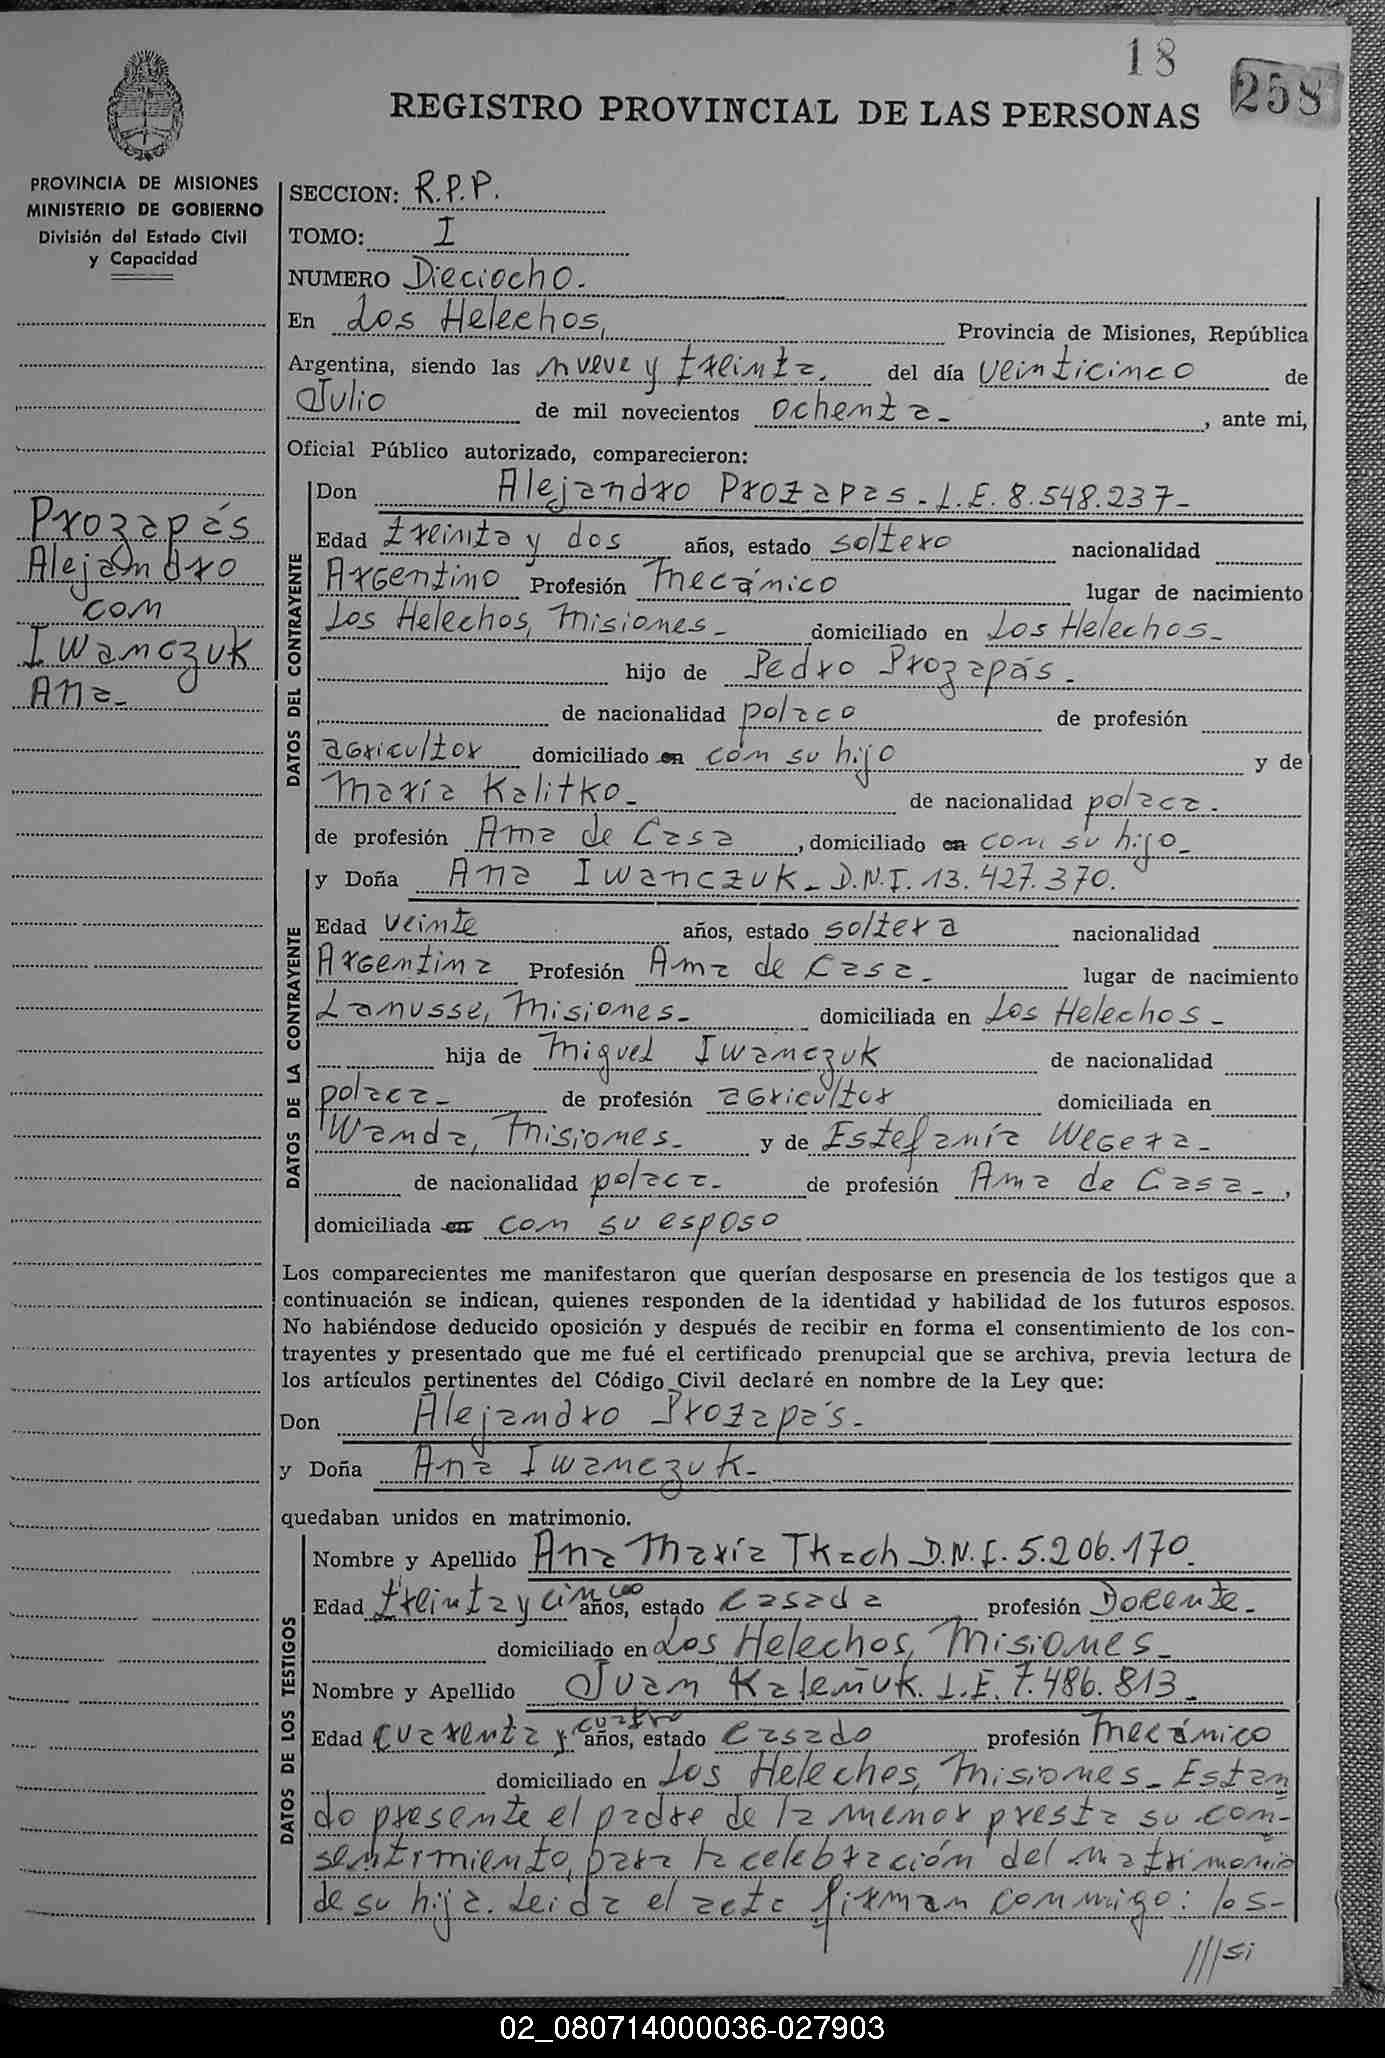 18
258
REGISTRO PROVINCIAL DE LAS PERSONAS
PROVINCIA DE MISIONES
MINISTERIO DE GOBIERNO
División del Estado Civil
y Capacidad
Prozapás
Alejandro
con
Iwanczuk
Ana.-
SECCION: R.P.P.
TOMO: I
NUMERO Dieciocho.-
En Los Helechos, Provincia de Misiones, República
Argentina, siendo las nueve y treinta, del día veinticinco de
Julio de mil novecientos ochenta.- , ante mi,
Oficial Público autorizado, comparecieron:
DATOS DEL CONTRAYENTE
Don Alejandro Prozapas - L.E. 8.548.237-
Edad treinta y dos años, estado soltero nacionalidad
Argentino Profesión mecánico lugar de nacimiento
Los Helechos, Misiones.- domiciliado en Los Helechos.-
hijo de Pedro Prozapás.-
de nacionalidad polaco de profesión
agricultor domiciliado en con su hijo y de
María Kalitko.- de nacionalidad polaca.-
de profesión Ama de Casa , domiciliado en con su hijo.-
DATOS DE LA CONTRAYENTE
y Doña Ana Iwanczuk - D.N.I. 13.427.370.
Edad veinte años, estado soltera nacionalidad
Argentina Profesión Ama de Casa.- lugar de nacimiento
Lanusse, Misiones.- domiciliada en Los Helechos.-
hija de Miguel Iwanczuk de nacionalidad
polaca.- de profesión agricultor domiciliada en
Wanda, Misiones.- y de Estefanía Wegera.-
de nacionalidad polaca.- de profesión Ama de Casa.-,
domiciliada en con su esposo
Los comparecientes me manifestaron que querían desposarse en presencia de los testigos que a
continuación se indican, quienes responden de la identidad y habilidad de los futuros esposos.
No habiéndose deducido oposición y después de recibir en forma el consentimiento de los con-
trayentes y presentado que me fué el certificado prenupcial que se archiva, previa lectura de
los artículos pertinentes del Código Civil declaré en nombre de la Ley que:
Don Alejandro Prozapás.-
y Doña Ana Iwanczuk.-
quedaban unidos en matrimonio.
DATOS DE LOS TESTIGOS
Nombre y Apellido Ana María Tkach D.N.I. 5.206.170.
Edad treinta y cinco años, estado casada profesión Docente.-
domiciliado en Los Helechos, Misiones.-
Nombre y Apellido Juan Kaleñuk. L.E. 7.486.813.-
Edad cuarenta y cuatro años, estado casado profesión mecánico
domiciliado en Los Helechos, Misiones.- Estan
do presente el padre de la menor presta su con-
sentimiento, para la celebración del matrimonio
de su hija. Leida el acta firman conmigo: los-
///si
02_080714000036-027903